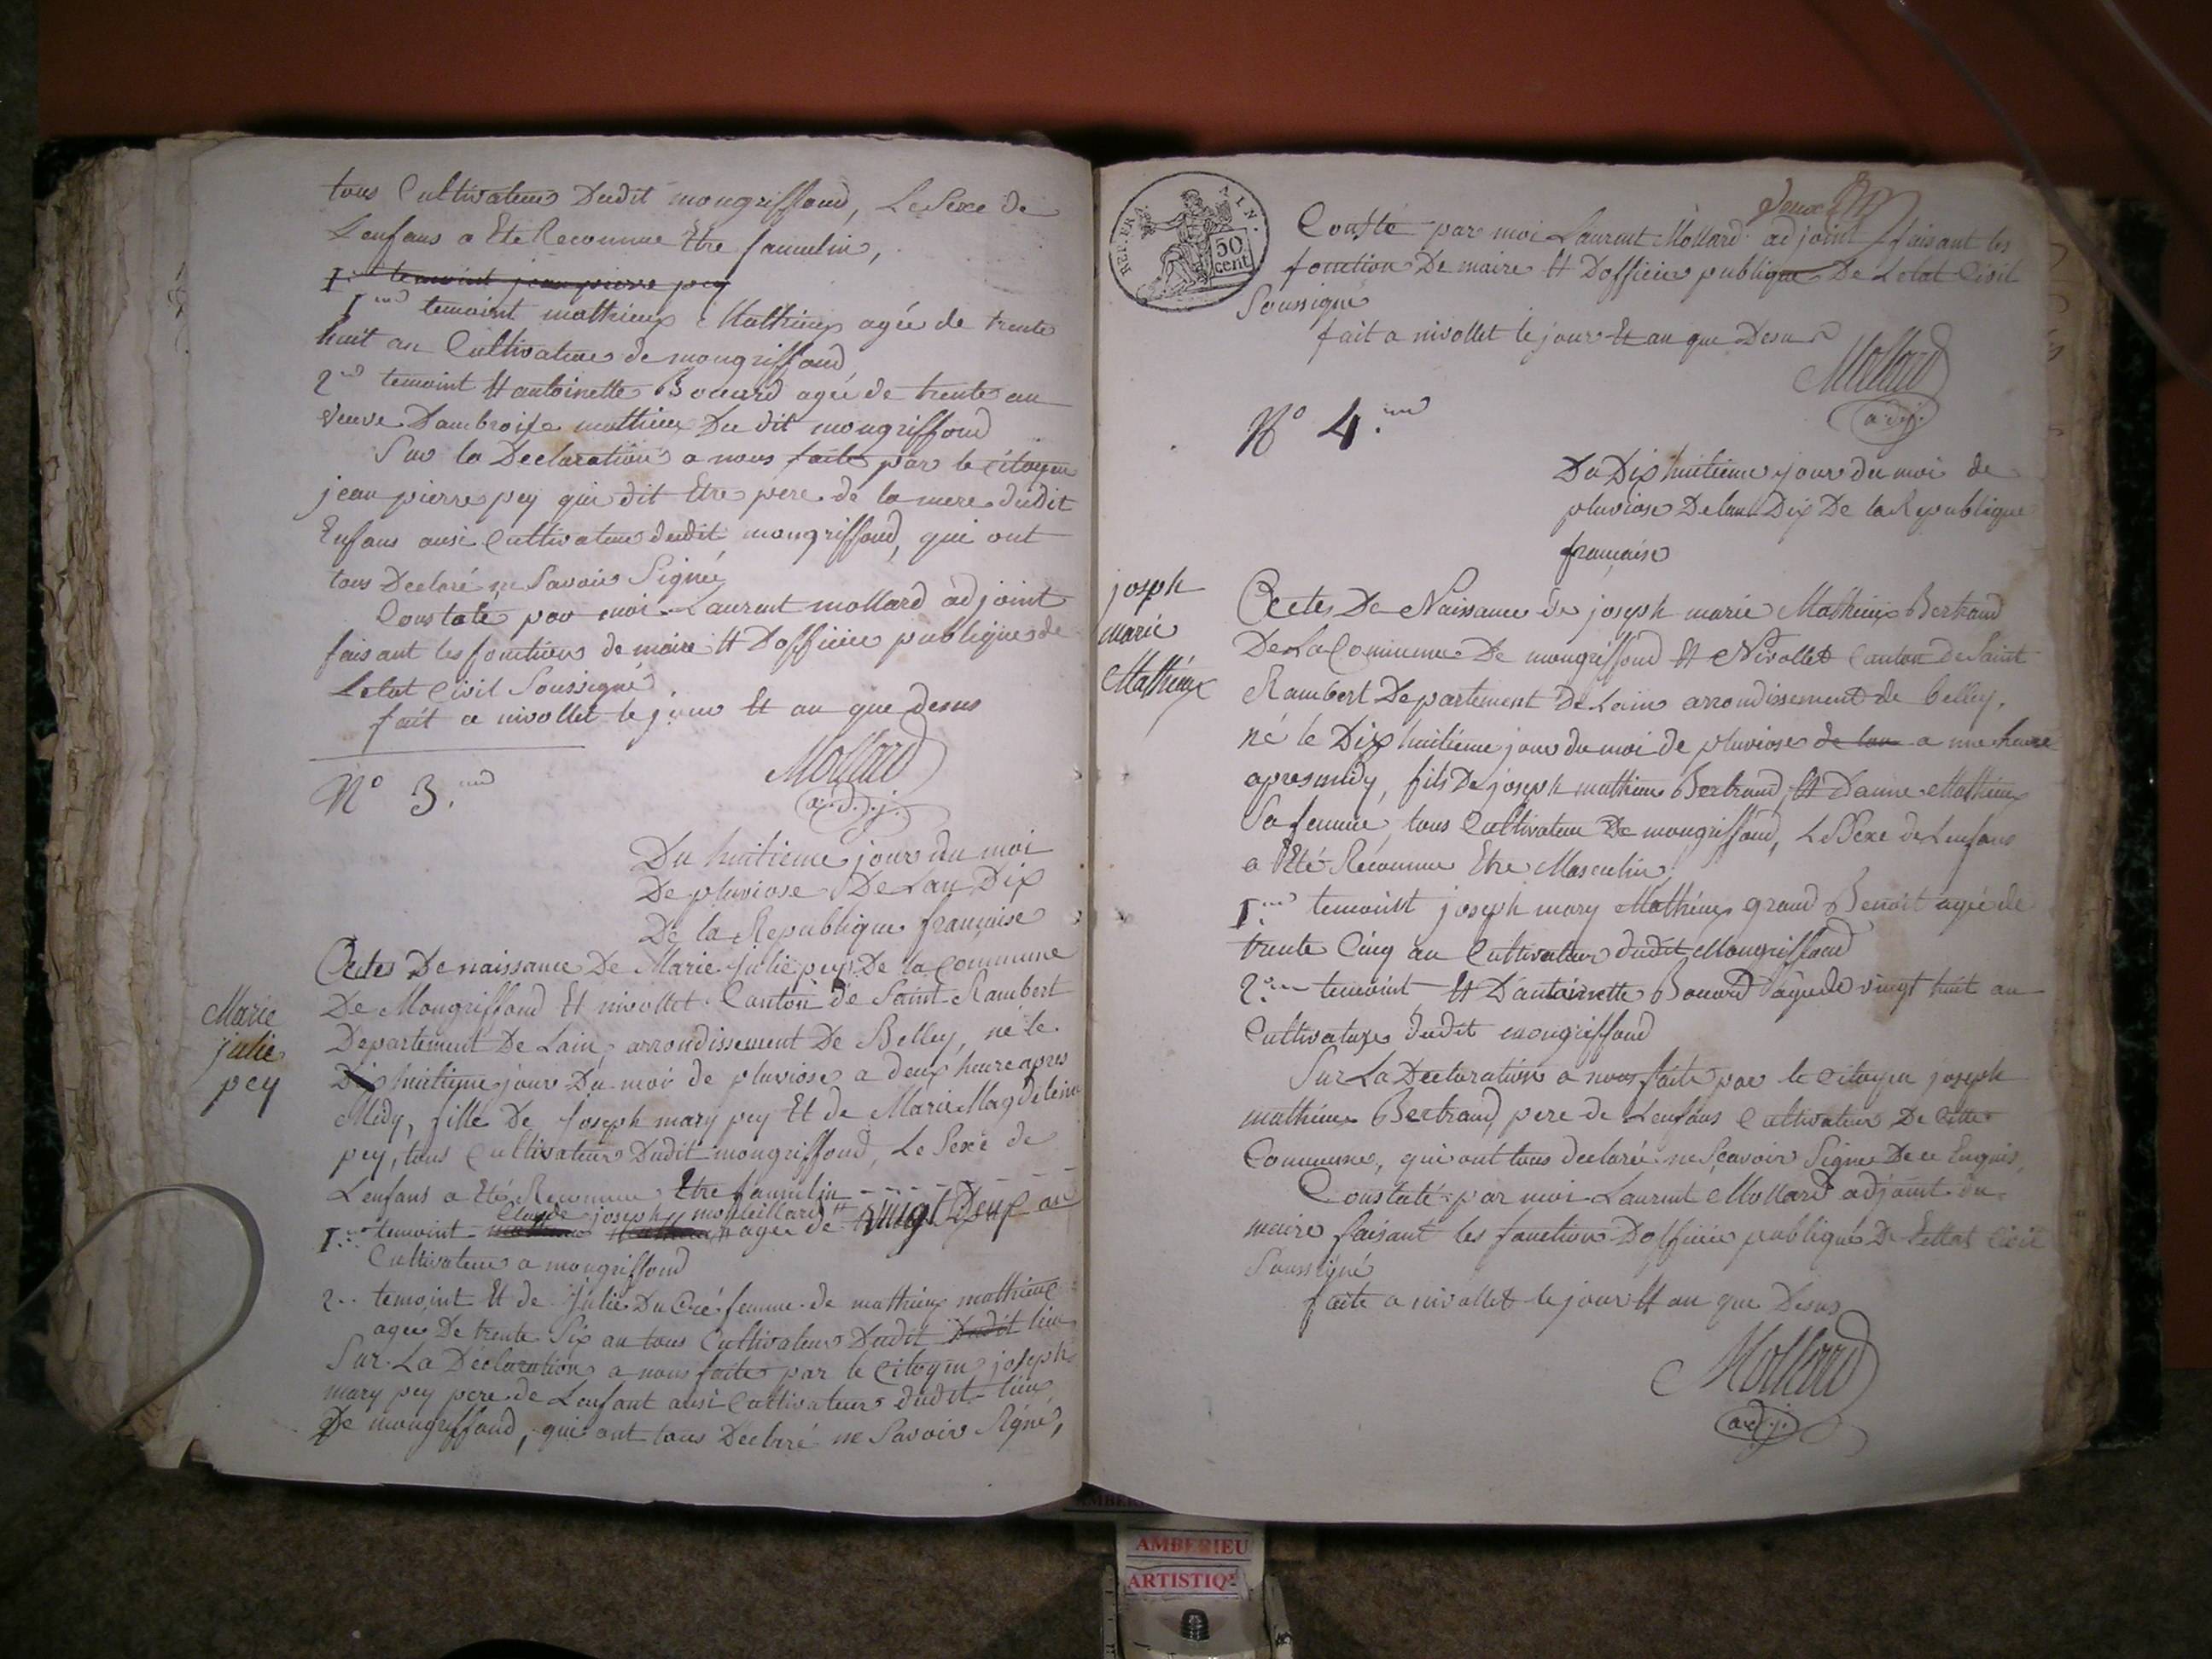 tous Cultivateur Dudit mongriffond, Le Sexe de
Lenfans a Ete Reconnue Etre familin,
1. temoint jean pierre pey
1.me temoint mathieux Mathieux agée de trente
huit an Cultivateur de mongriffond
2.nd temoint Et antoinette Bouard agée de trente an
veuve Dambroise mathieux Du dit mongriffond
Sur la Declaration a nous faite par le Citoyen
jean pierre pey qui dit Etre pere de la mere dudit
Enfans ausi Cultivateur dudit mongriffond, qui ont
tous Declaré ne Savoir Signé
Constaté par moi Laurent mollard adjoint
faisant les fonction de maire Et Dofficier publique de
Letat Civil Soussigné
fait a nivollet le jour Et an que desus
Mollard
a.d.j.
N° 3.me
Du huitieme jour du moi
De pluviose De Lan Dix
De la Republique française
Marie
julie
pey
Actes De naissance De Marie julie pey De la Commune
De Mongriffond Et nivollet Canton de Saint Rambert
Departement De Lain, arrondissement De Belley, né le
Dix huitieme jour Du moi de pluviose a deux heure apres
Midy, fille De joseph mary pey Et de Marie Magdeleine
pey, tous Cultivateur Dudit mongriffond, Le Sexe de
Lenfans a Eté Reconnue Etre familin
Claude joseph
1.me temoint agée de vingt Deux an
Cultivateur a mongriffond
2.. temoint Et de julie Du Cré femme de mathieux mathieux
agee De trente Six an tous Cultivateur Dudit Dudit lieu
Sur La Déclaration a nous faite par le Citoyen joseph
mary pey pere de Lenfant ausi Cultivateur dudit lieux
De mongriffond, qui ont tous Declaré ne Savoir Signé,
REP. FRA.
50
cent
Consté par moi Laurent Mollard adjoint faisant les
fonction De maire Et Dofficier publique De Letat Civil
Soussigné
fait a nivollet le jour Et an que Desus
Mollard
a.d.j.
N° 4.me
Du Dix huitieme jour du moi de
pluviose De lan Dix De la Republique
française
joseph
marie
Mathieux
Actes De Naissance De joseph marie Mathieux Bertrand
De La Commune De mongriffond Et Nivollet Canton De Saint
Rambert Departement De Lain arrondissement de belley,
né le Dix huitieme jour du moi de pluviose de lan a une heure
apres midy, fils De joseph mathieux Bertrand, Et Danne Mathieux
Sa femme tous Cultivateur De mongriffond, Le Sexe de Lenfans
a Eté Reconnue Etre Masculin
1.me temoint joseph mary Mathieux grand Benoit agée de
trente Cinq an Cultivateur dudit Mongriffond
2.me temoint Et Dantoinette Bouard agée de vingt huit an
Cultivateur dudit mongriffond
Sur La Declaration a nous faite par le Citoyen joseph
mathieux Bertrand pere de Lenfans Cultivateur De Cette
Commune, qui ont tous declaré ne Sçavoir Signe De ce Enquis,
Constaté par moi Laurent Mollard adjoint du
maire faisant les fonction Dofficier publique De Lettat Civil
Soussigné
faite a nivollet le jour Et an que Desus
Mollard
a.d.j.
AMBERIEU
ARTISTIQ